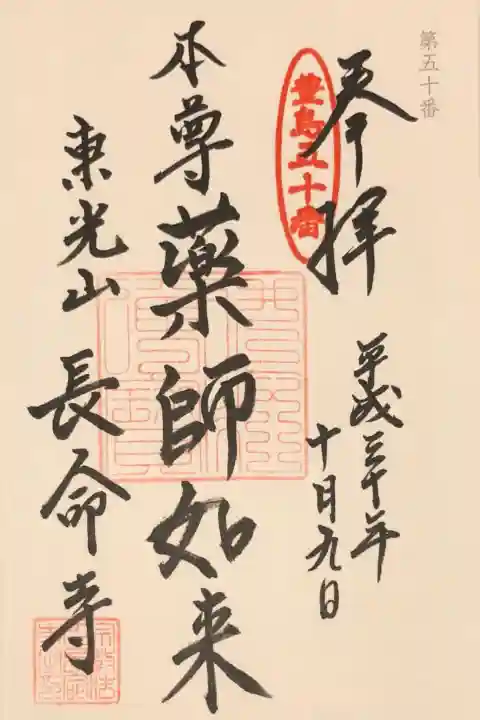 第五十番
奉拝
豊島五十番
平成三十年
十月九日
本尊薬師如来
東光山長命寺